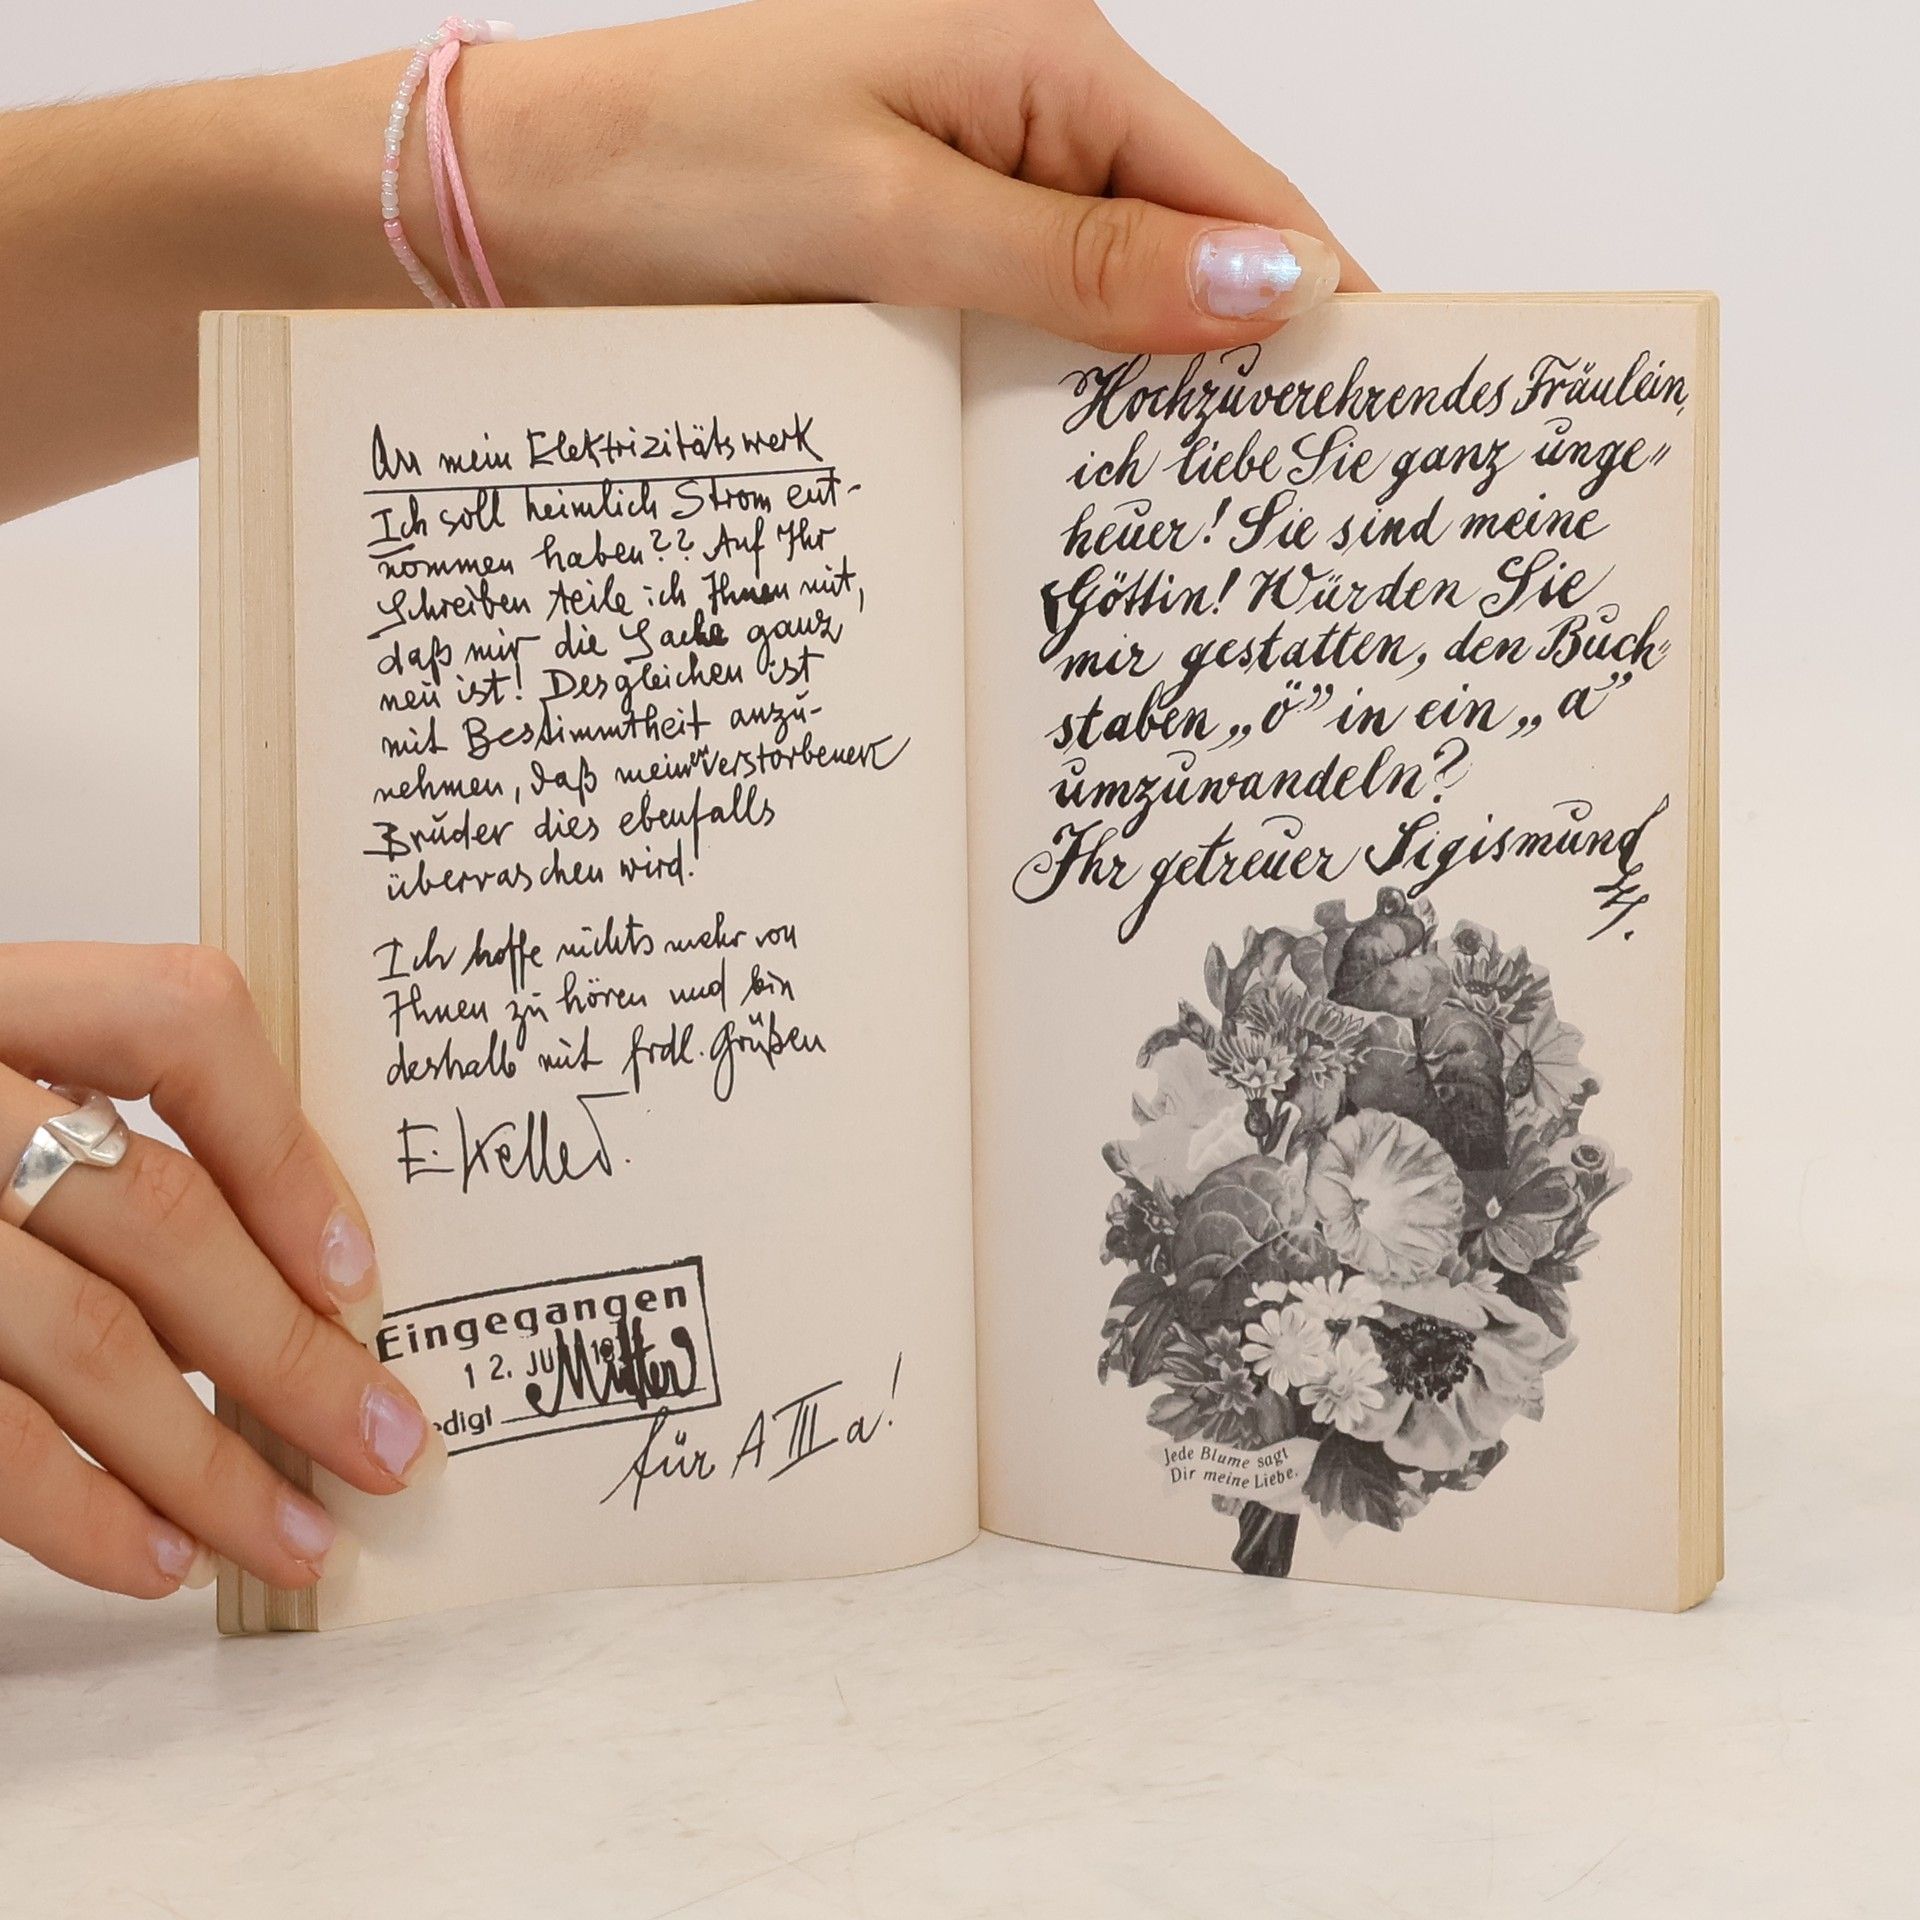 An mein Elektrizitätswerk
Ich soll heimlich Strom ent-
nommen haben?? Auf Ihr
Schreiben teile ich Ihnen mit,
daß mir die Sache ganz
neu ist! Desgleichen ist
mit Bestimmtheit anzu-
nehmen, daß meinen verstorbenen
Bruder dies ebenfalls
überraschen wird!
Ich hoffe nichts mehr von
Ihnen zu hören und bin
deshalb mit frdl. Grüßen
E. Keller.
Eingegangen
12. JU
edigt
für A III a!
Hochzuverehrendes Fräulein,
ich liebe Sie ganz unge=
heuer! Sie sind meine
Göttin! Würden Sie
mir gestatten, den Buch=
staben „ö” in ein „a”
umzuwandeln?
Ihr getreuer Sigismund
Jede Blume sagt
Dir meine Liebe.